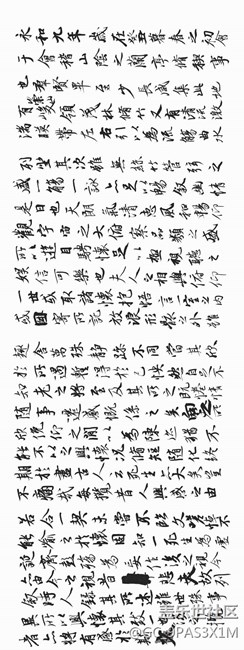 永和九年歲在癸丑暮春之初會
于會稽山陰之蘭亭脩稧事
也群賢畢至少長咸集此地
有崇山峻領茂林脩竹又有清流激
湍暎帶左右引以為流觴曲水
列坐其次雖無絲竹管弦之
盛一觴一詠亦足以暢敘幽情
是日也天朗氣清惠風和暢仰
觀宇宙之大俯察品類之盛
所以遊目騁懷足以極視聽之
娛信可樂也夫人之相與俯仰
一世或取諸懷抱悟言一室之內
或因寄所託放浪形骸之外雖
趣舍萬殊靜躁不同當其欣
於所遇暫得於己怏然自足不
知老之將至及其所之既惓情
隨事遷感慨係之矣向之所
欣俛仰之閒以為陳迹猶不
能不以之興懷況脩短隨化終
期於盡古人云死生亦大矣豈
不痛哉每攬昔人興感之由
若合一契未嘗不臨文嗟悼不
能喻之於懷固知一死生為虛
誕齊彭殤為妄作後之視今
亦由今之視昔悲夫故列
敘時人錄其所述雖世殊事
異所以興懷其致一也後之攬
者亦將有感於斯文
盖乐世社区
@GOOPAS3X1M